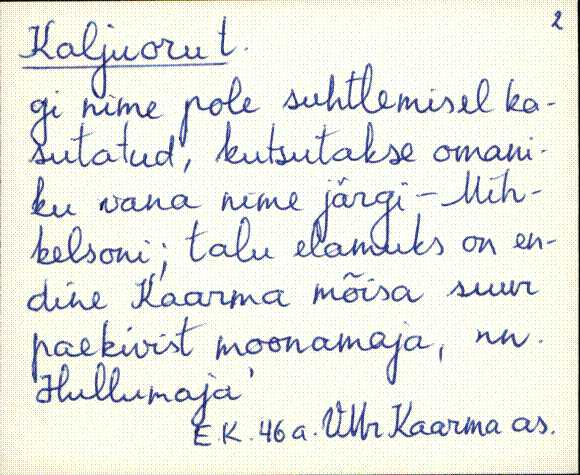 2
Kaljuoru t.
gi nime pole suhtlemisel ka-
sutatud, kutsutakse omani-
ku vana nime järgi – Mih-
kelsoni; talu elamuks on en-
dine Kaarma mõisa suur
paekivist moonamaja, nn.
'Hullumaja'
E.K. 46 a. Kaarma as.